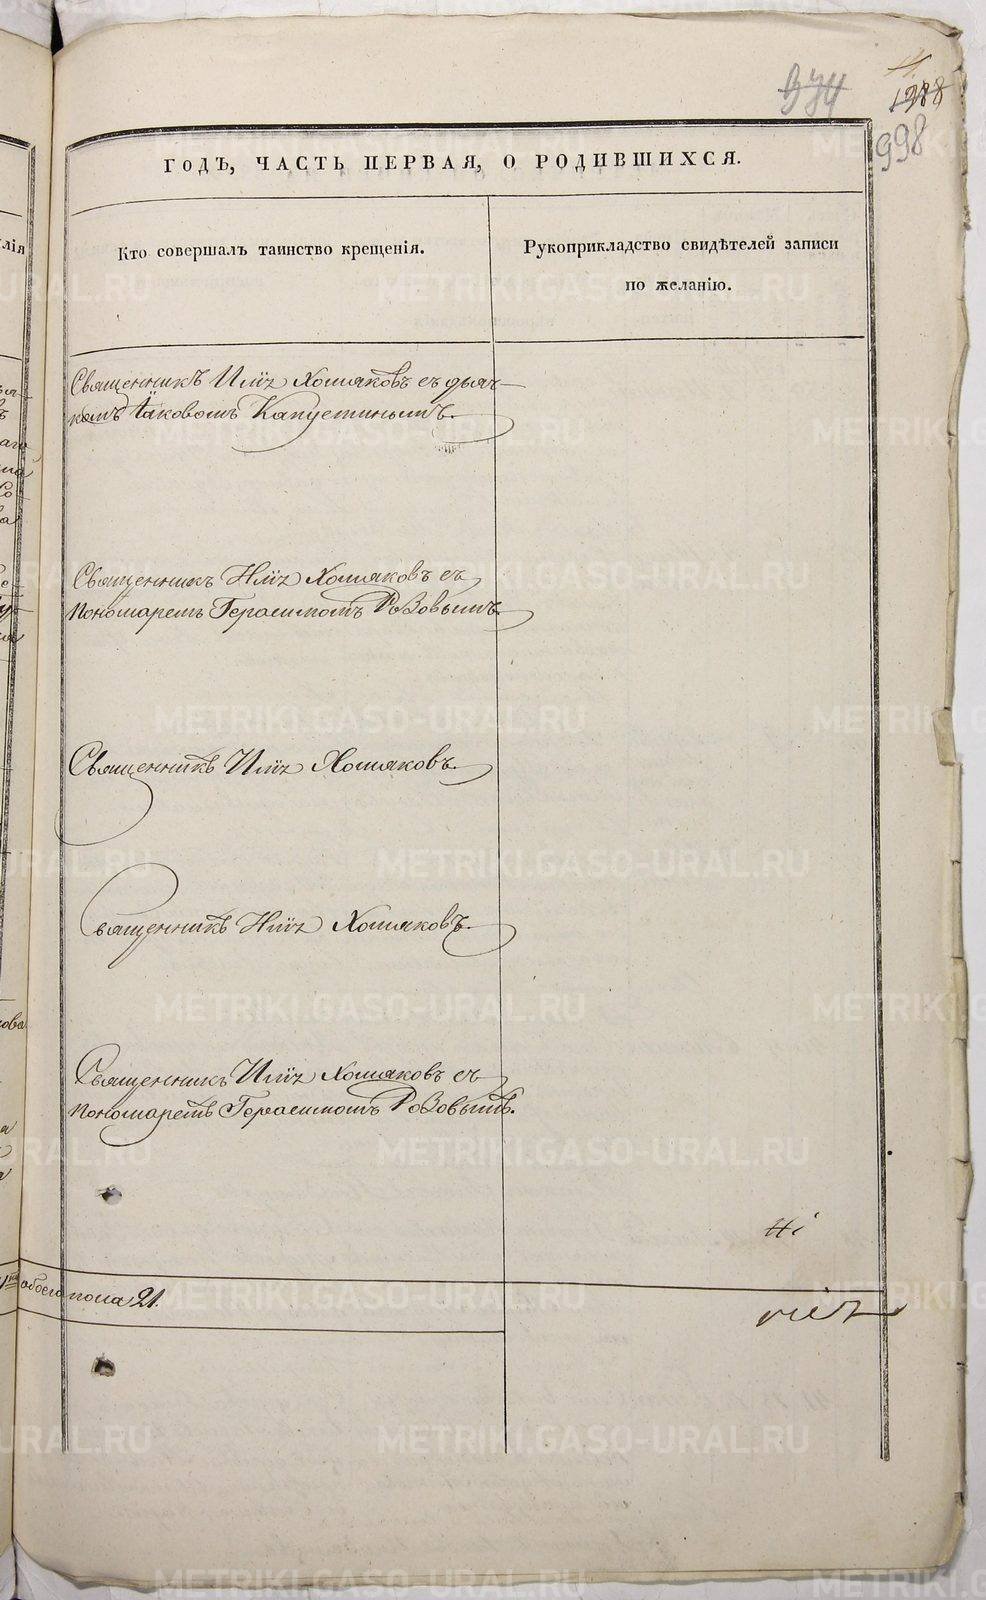 974
998
ГОДЪ, ЧАСТЬ ПЕРВАЯ, О РОДИВШИХСЯ.
Кто совершалъ таинство крещенія.
Рукоприкладство свидѣтелей записи
по желанію.
Священникъ Илія Хомяковъ съ дьяч-
комъ Іаковомъ Капустинымъ.
Священникъ Илія Хомяковъ съ
Пономаремъ Герасимомъ Розовымъ.
Священникъ Илія Хомяковъ.
Священникъ Илія Хомяковъ.
Священникъ Илія Хомяковъ съ
Пономаремъ Герасимомъ Розовымъ.
обоего пола 21.
METRIKI.GASO-URAL.RU